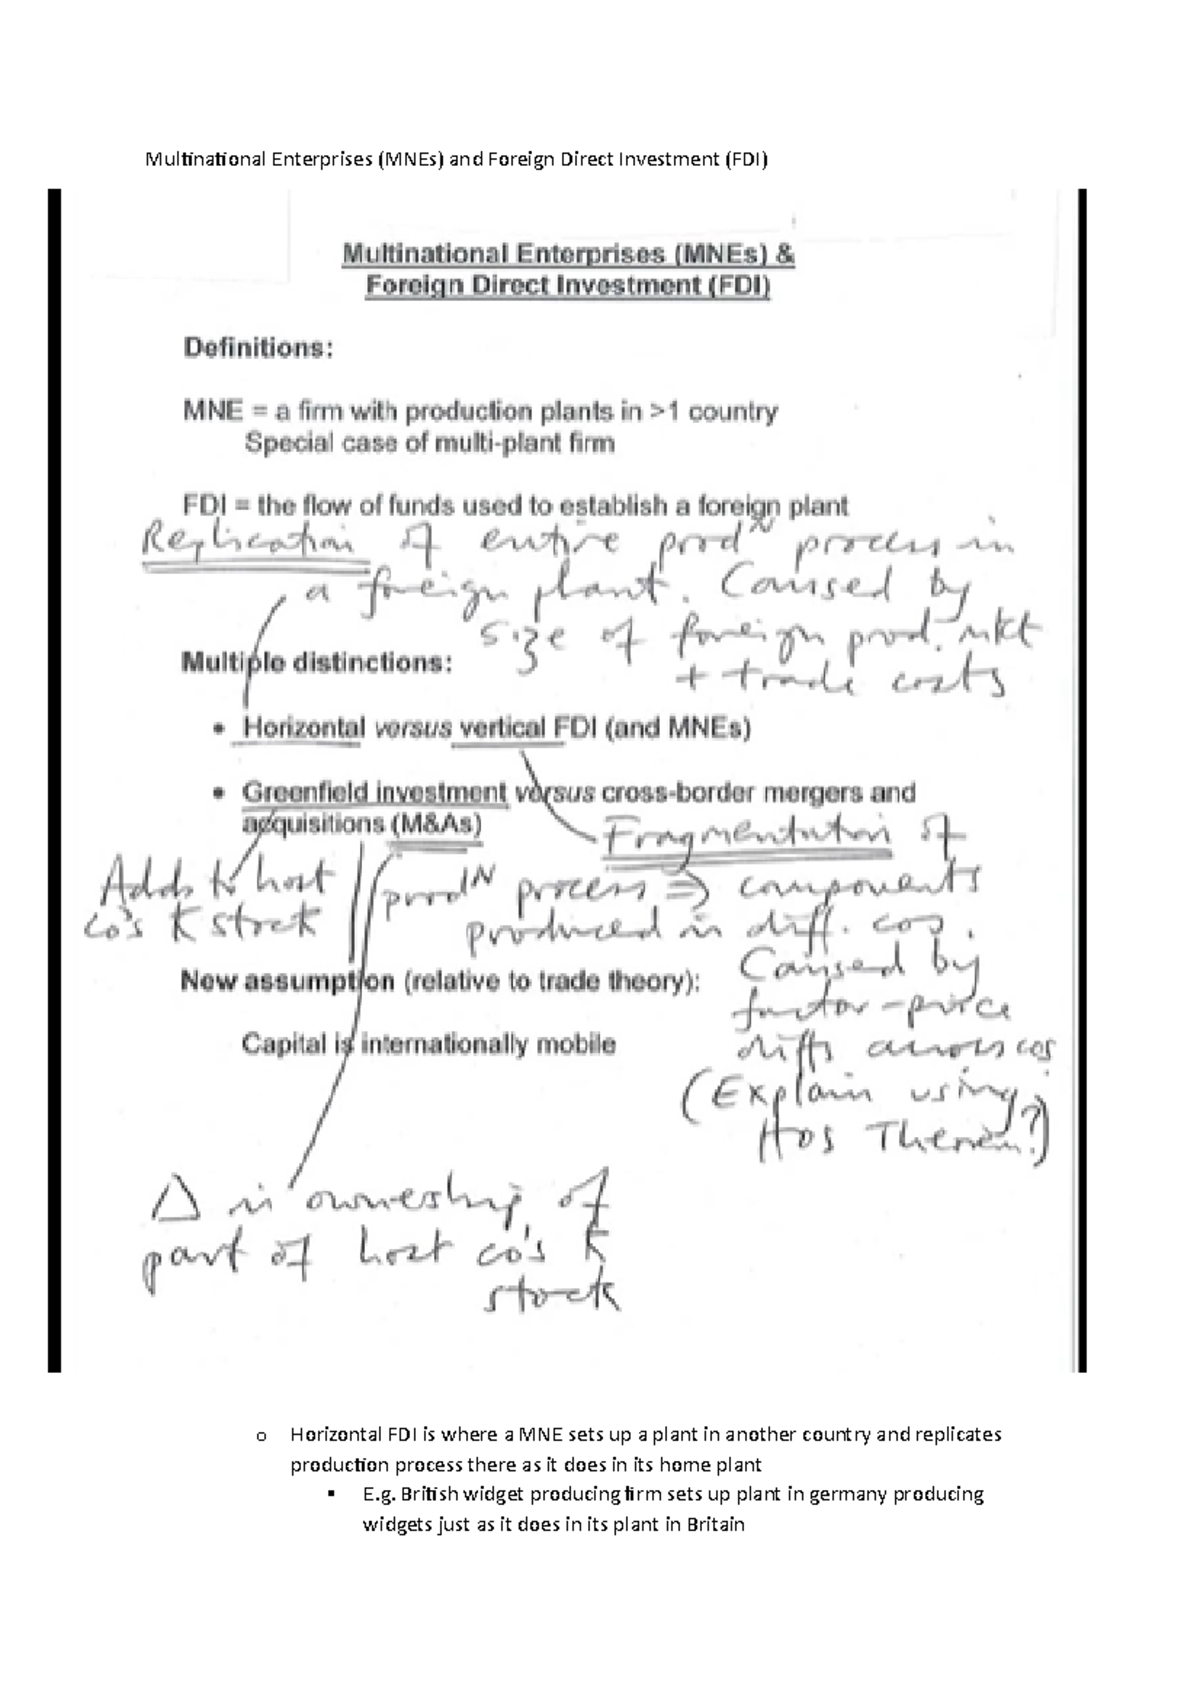 Multinational Enterprises (MNEs) and Foreign Direct Investment (FDI)
Multinational Enterprises (MNEs) &
Foreign Direct Investment (FDI)
Definitions:
MNE = a firm with production plants in >1 country
Special case of multi-plant firm
FDI = the flow of funds used to establish a foreign plant
Replication of entire prodᴺ process in
a foreign plant. Caused by
size of foreign prod. mkt
+ trade costs
Multiple distinctions:
• Horizontal versus vertical FDI (and MNEs)
• Greenfield investment versus cross-border mergers and
acquisitions (M&As)
Adds to host
co's K stock
Fragmentation of
prodᴺ process ⇒ components
produced in diff. cos.
Caused by
factor-price
diffs across cos
(Explain using
HOS Theorem?)
New assumption (relative to trade theory):
Capital is internationally mobile
Δ in ownership of
part of host co's K
stock
o Horizontal FDI is where a MNE sets up a plant in another country and replicates
production process there as it does in its home plant
▪ E.g. British widget producing firm sets up plant in germany producing
widgets just as it does in its plant in Britain